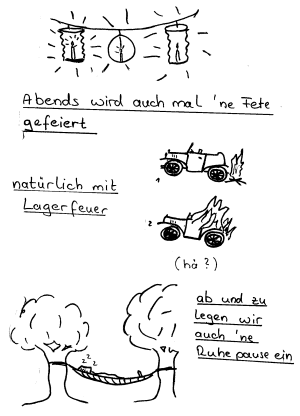 Abends wird auch mal 'ne Fete
gefeiert
natürlich mit
Lagerfeuer
1
2
(hä?)
zzz
ab und zu
legen wir
auch 'ne
Ruhepause ein